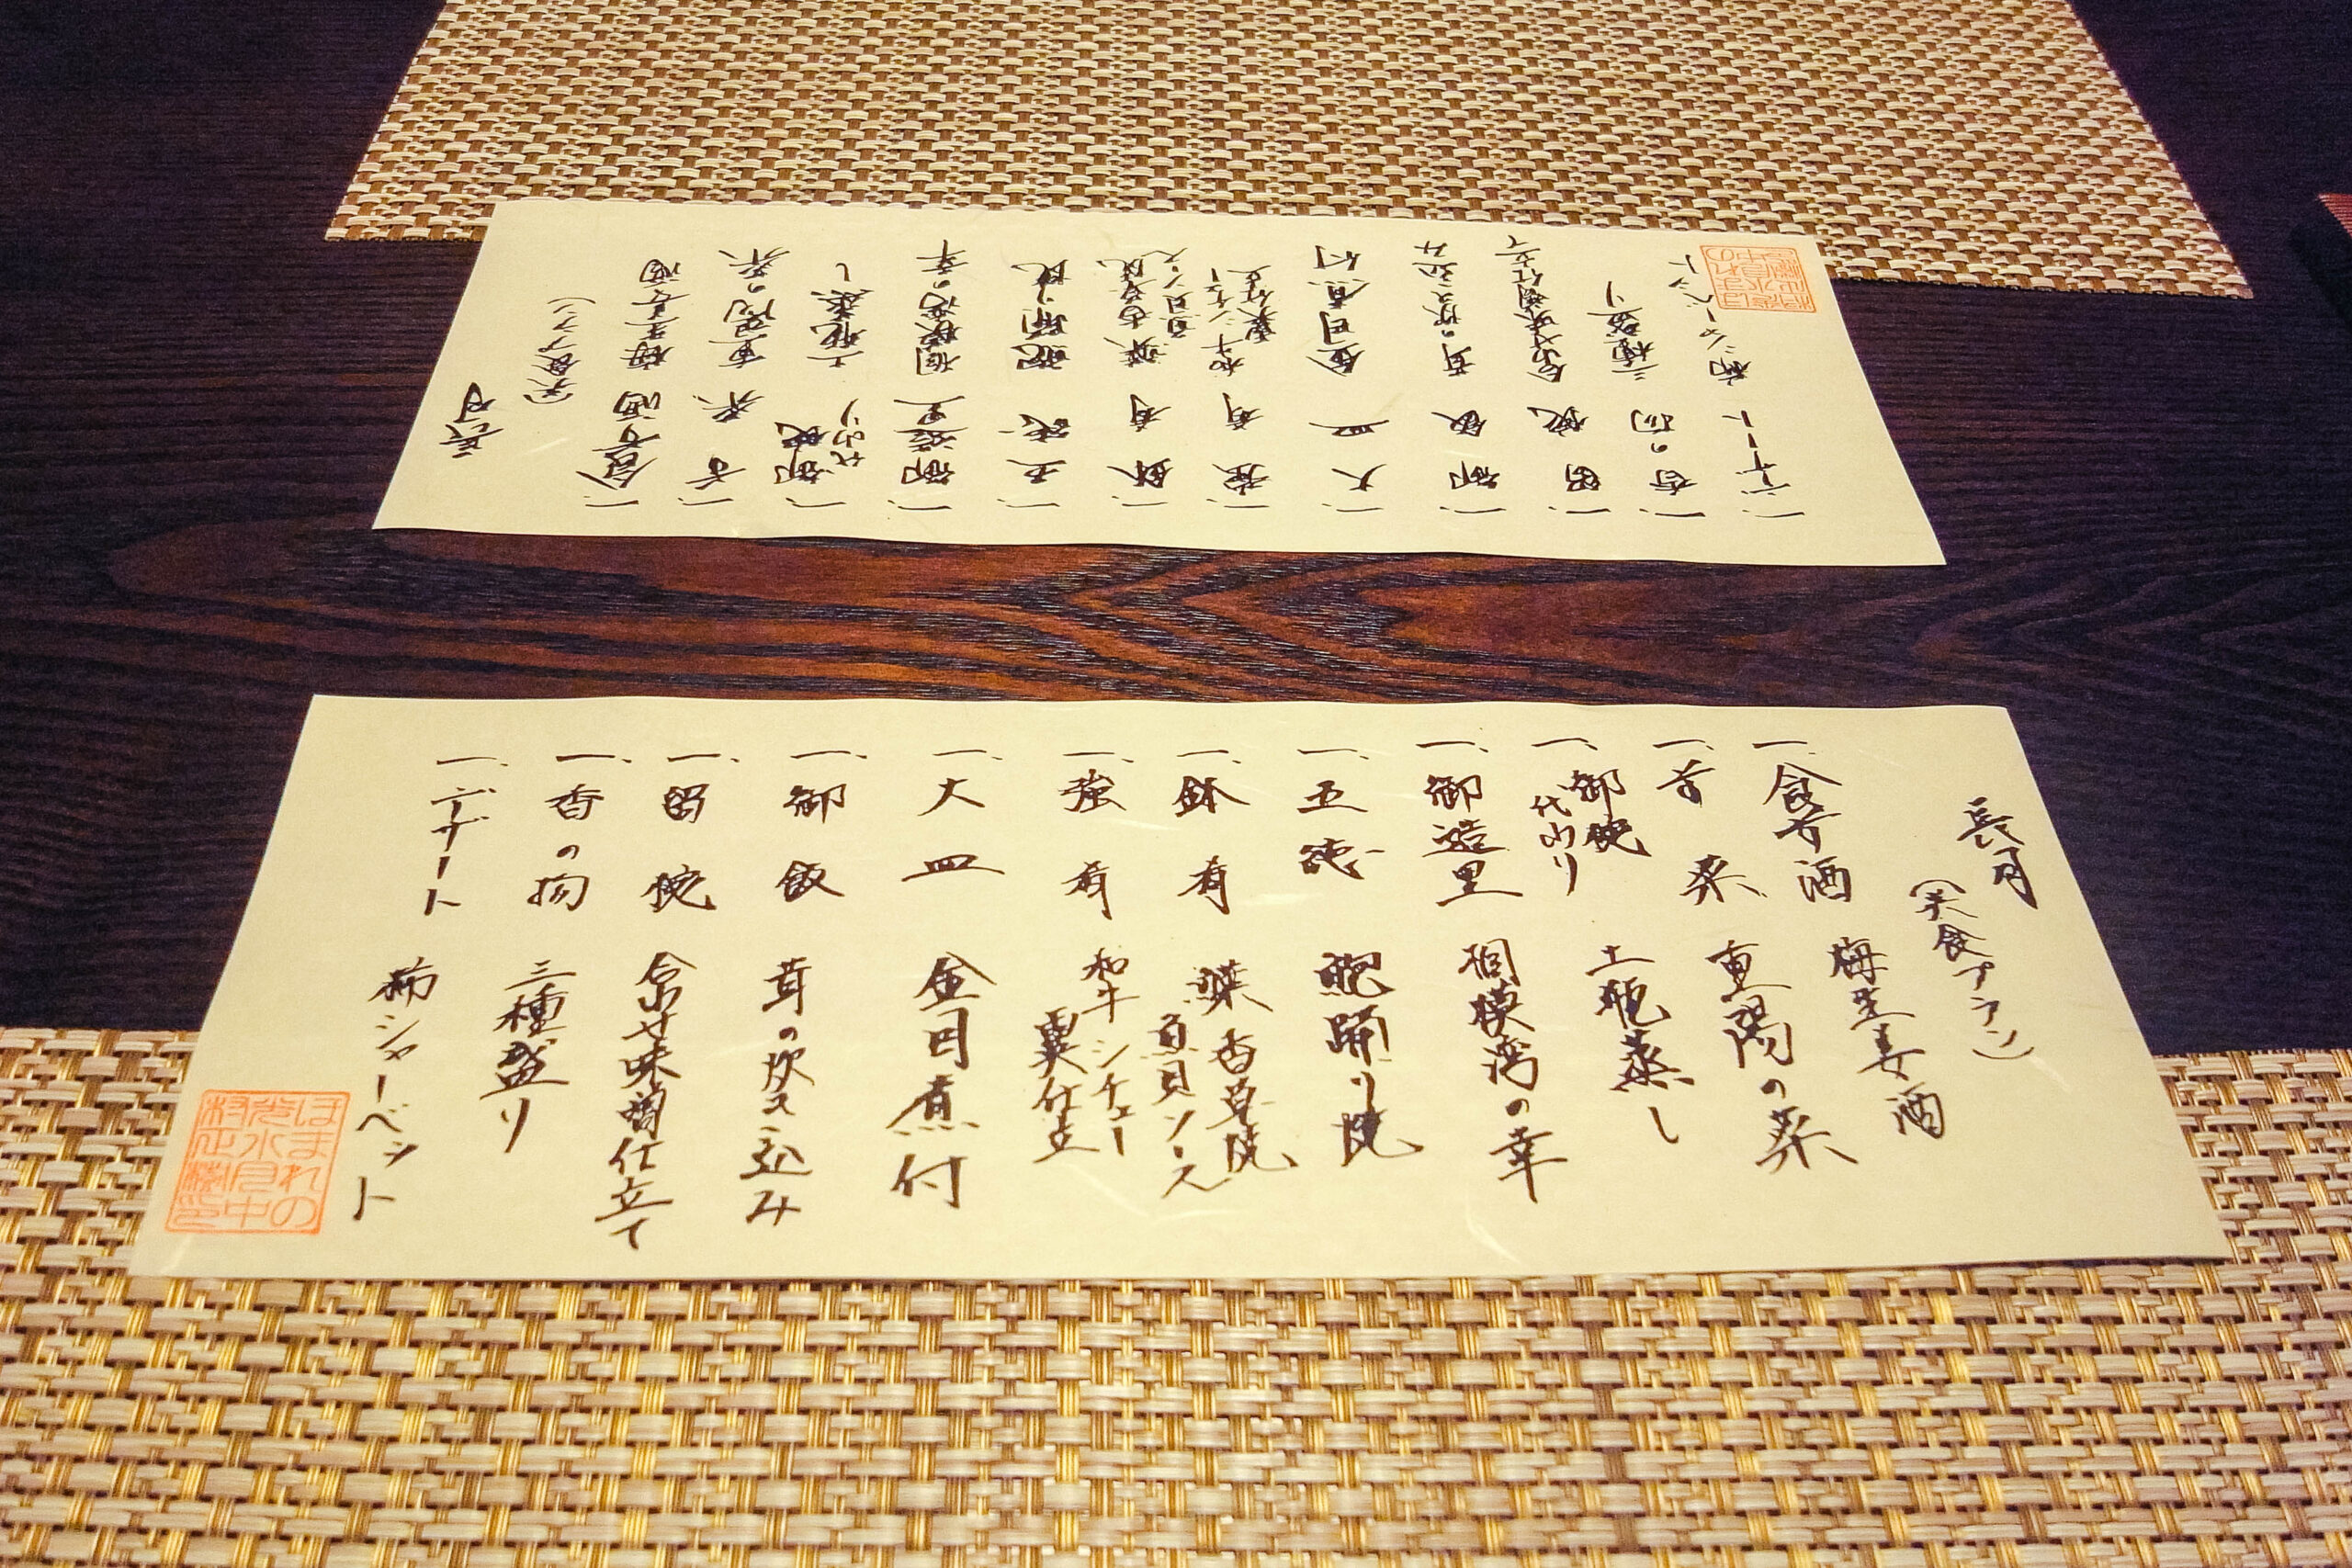 長月
(美食プラン)
一、食前酒 梅生姜酒
一、前菜 重陽の菜
一、御椀代り 土瓶蒸し
一、御造里 相模湾の幸
一、五徳 鮑踊り焼
一、鉢肴 鰈香草焼
魚貝ソース
一、強肴 和牛シチュー
裏仕立
一、大皿 金目煮付
一、御飯 茸の炊き込み
一、留椀 合わせ味噌仕立て
一、香の物 三種盛り
一、デザート 柿シャーベット
ほまれの
光水月中
長月
(美食プラン)
一、食前酒 梅生姜酒
一、前菜 重陽の菜
一、御椀代り 土瓶蒸し
一、御造里 相模湾の幸
一、五徳 鮑踊り焼
一、鉢肴 鰈香草焼
魚貝ソース
一、強肴 和牛シチュー
裏仕立
一、大皿 金目煮付
一、御飯 茸の炊き込み
一、留椀 合わせ味噌仕立て
一、香の物 三種盛り
一、デザート 柿シャーベット